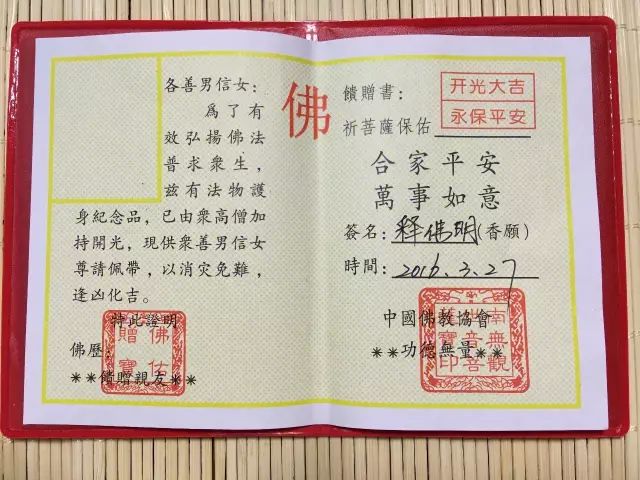 各善男信女：
為了有
效弘揚佛法
普求衆生，
兹有法物護
身紀念品，已由衆高僧加
持開光，現供衆善男信女
尊請佩帶，以消灾免難，
逢凶化吉。
特此證明
佛歷：
佛佑
贈寶
**饋贈親友**
佛
饋贈書：
开光大吉
永保平安
祈菩薩保佑
合家平安
萬事如意
簽名：释佛明(香願)
時間：2016.3.27
中國佛教協會
**功德無量**
南無觀
世音菩
薩寶印